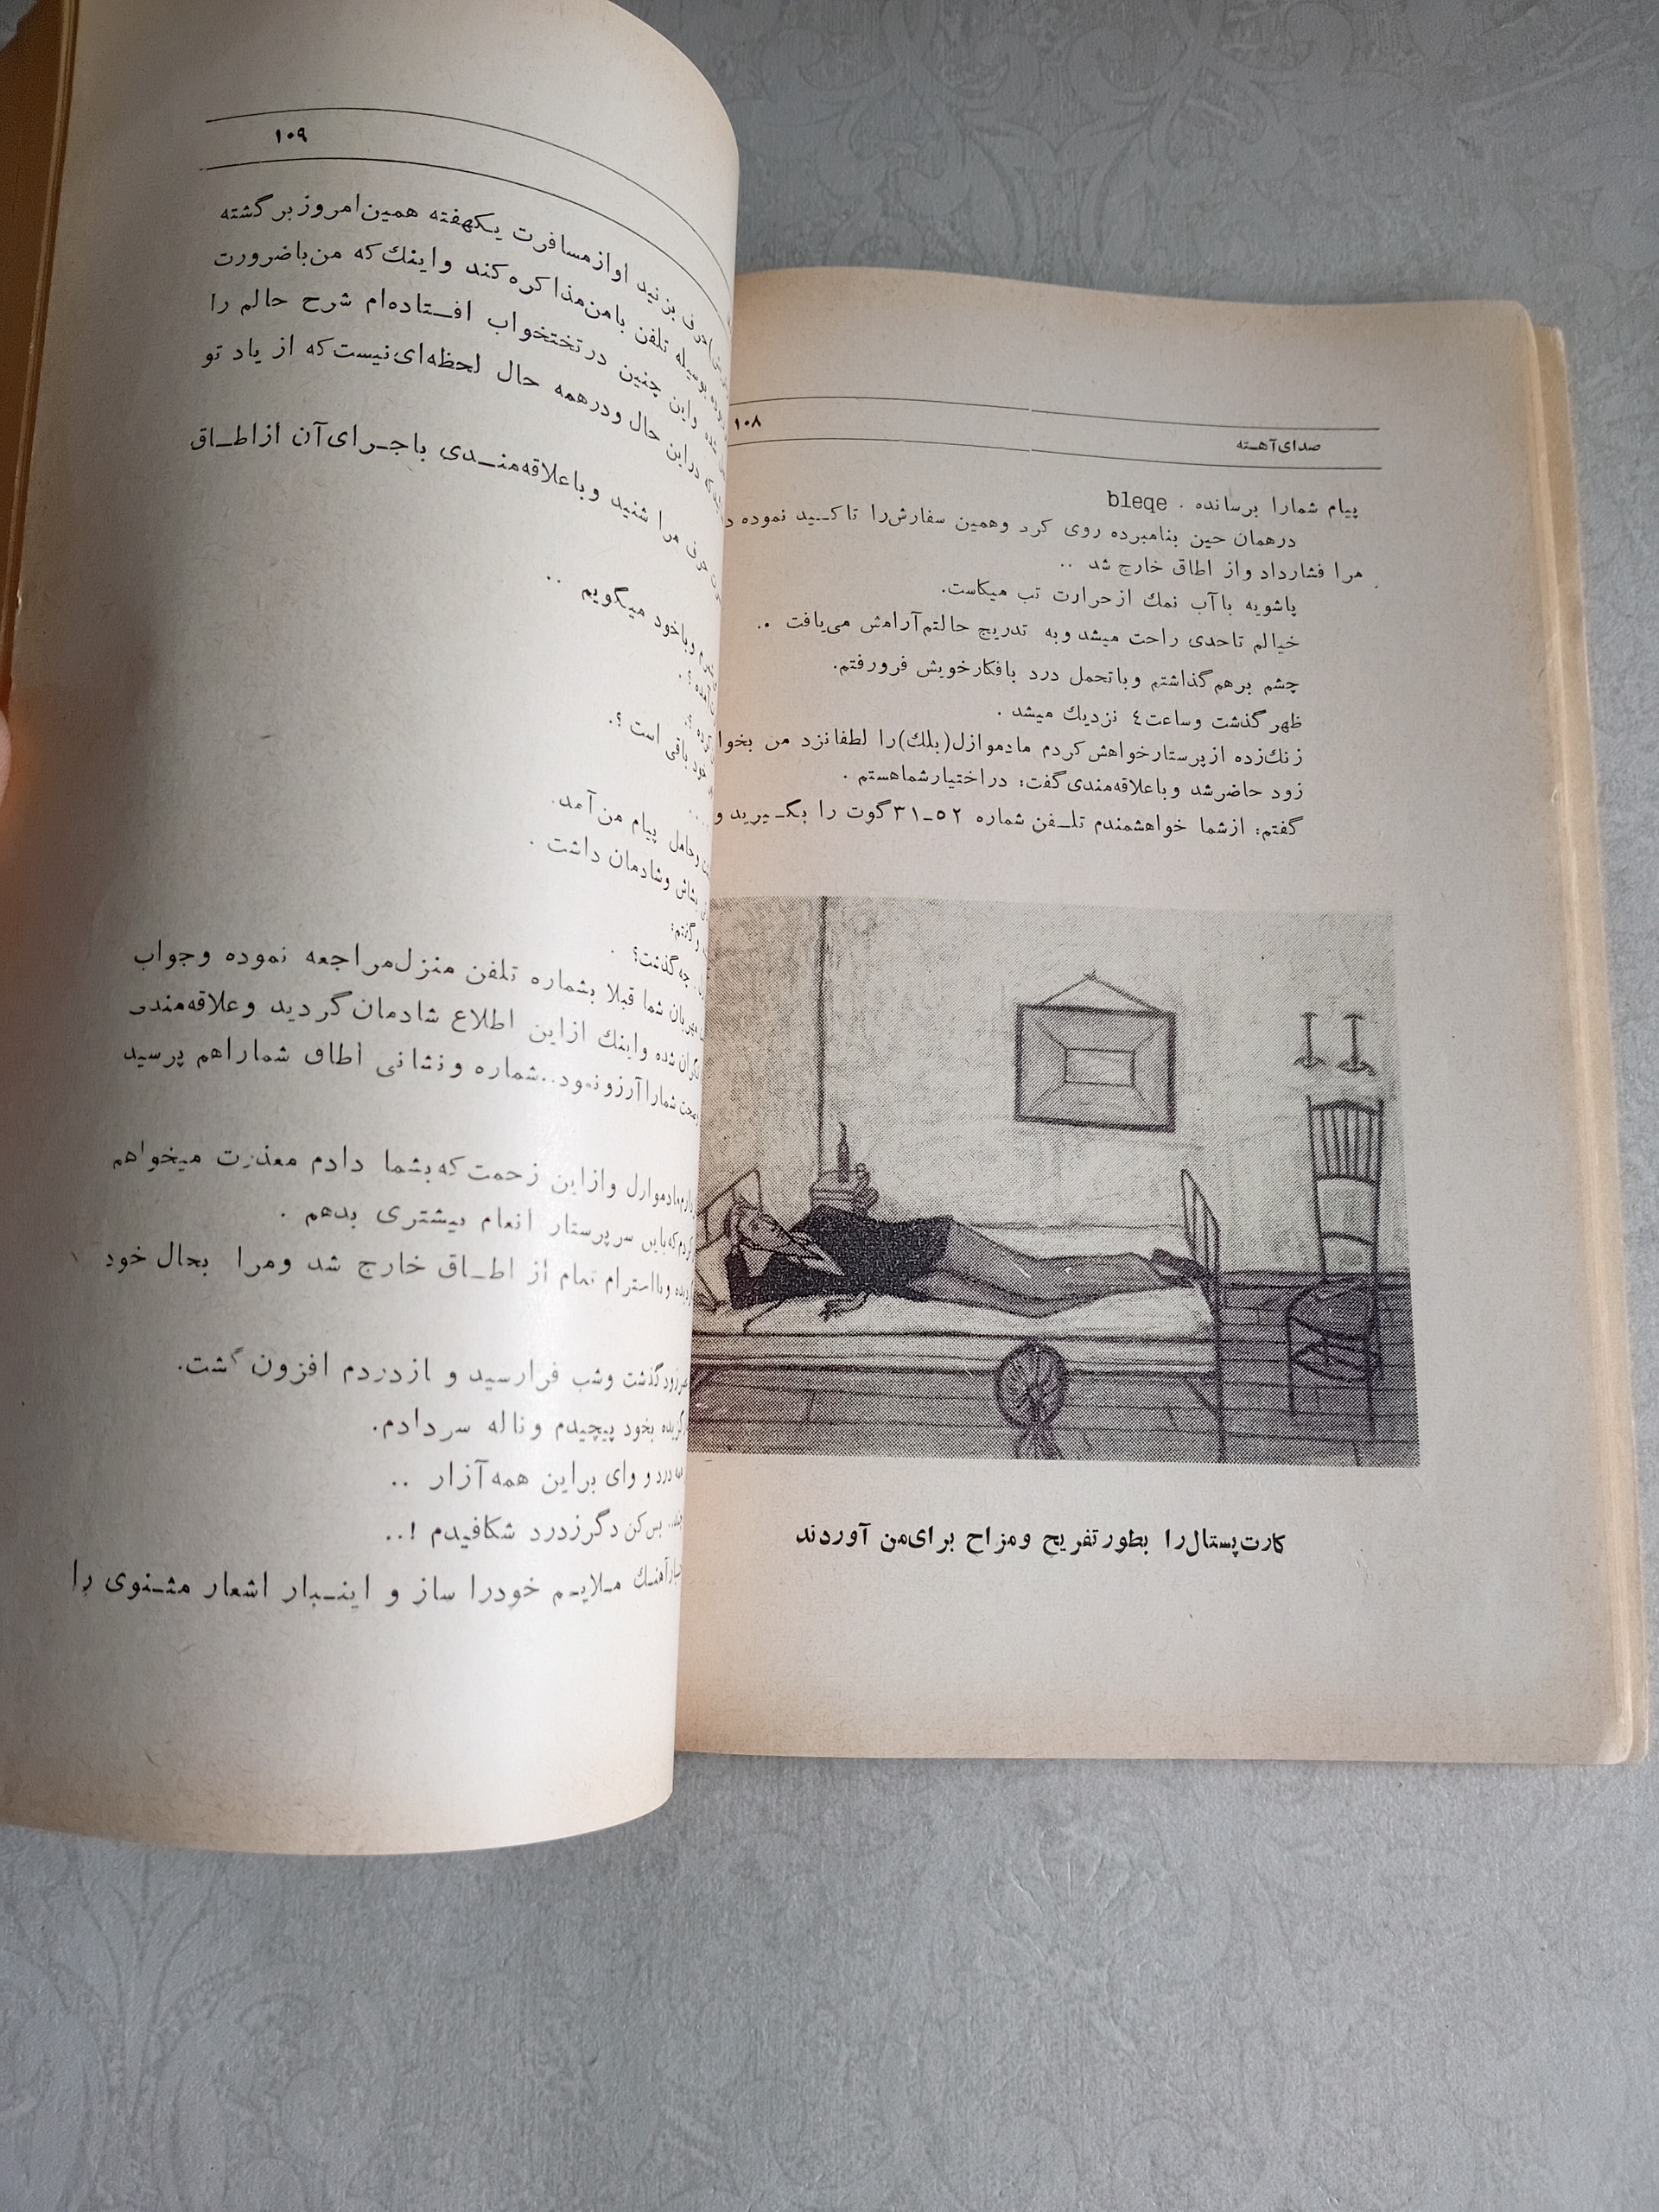 ۱۰۸
صدای‌آهسته
پیام شمارا برسانده . bleqe
درهمان حین بنامبرده روی کرد وهمین سفارش‌را تاکید نموده
مرا فشارداد واز اطاق خارج شد ..
پاشویه باآب نمك ازحرارت تب میکاست.
خیالم تاحدی راحت میشد وبه تدریج حالتم‌آرامش می‌یافت ..
چشم برهم‌گذاشتم وباتحمل درد بافکارخویش فرورفتم.
ظهر گذشت وساعت ٤ نزدیك میشد .
زنك‌زده ازپرستارخواهش‌کردم مادموازل(بلك)را لطفانزد من
زود حاضرشد وباعلاقه‌مندی‌گفت: دراختیارشماهستم .
گفتم: ازشما خواهشمندم تلفن شماره ۵۲-۳۱ گوت را بگیرید و
کارت‌پستال‌را بطورتفریح ومزاح برای‌من آوردند
۱۰۹
بزنید اوازمسافرت یکهفته همین‌امروز برگشته
بوسیله تلفن بامن‌مذاکره‌کند واینك‌که من‌باضرورت
واین چنین درتختخواب افتاده‌ام شرح حالم را
دراین حال ودرهمه حال لحظه‌ای‌نیست‌که از یاد تو
حرف مرا شنید وباعلاقه‌مندی باجرای‌آن ازاطاق
وباخود میگویم ..
خود باقی است ؟.
وحامل پیام من‌آمد.
بشاش وشادمان داشت .
وگفتم:
چه‌گذشت؟ .
مهربان شما قبلا بشماره تلفن منزل‌مراجعه نموده وجواب
شده واینك ازاین اطلاع شادمان‌گردید وعلاقه‌مندی
شماراآرزونمود..شماره ونشانی اطاق شماراهم پرسید
وازاین زحمت‌که‌بشما دادم معذرت میخواهم
سرپرستار انعام بیشتری بدهم .
تمام از اطاق خارج شد ومرا بحال خود
زودگذشت وشب فرارسید و ازدردم افزون گشت.
بخود پیچیدم وناله سردادم.
درد و وای براین همه‌آزار ..
بس‌کن دگرزدرد شکافیدم !..
ملایم خودرا ساز و اینبار اشعار مثنوی را